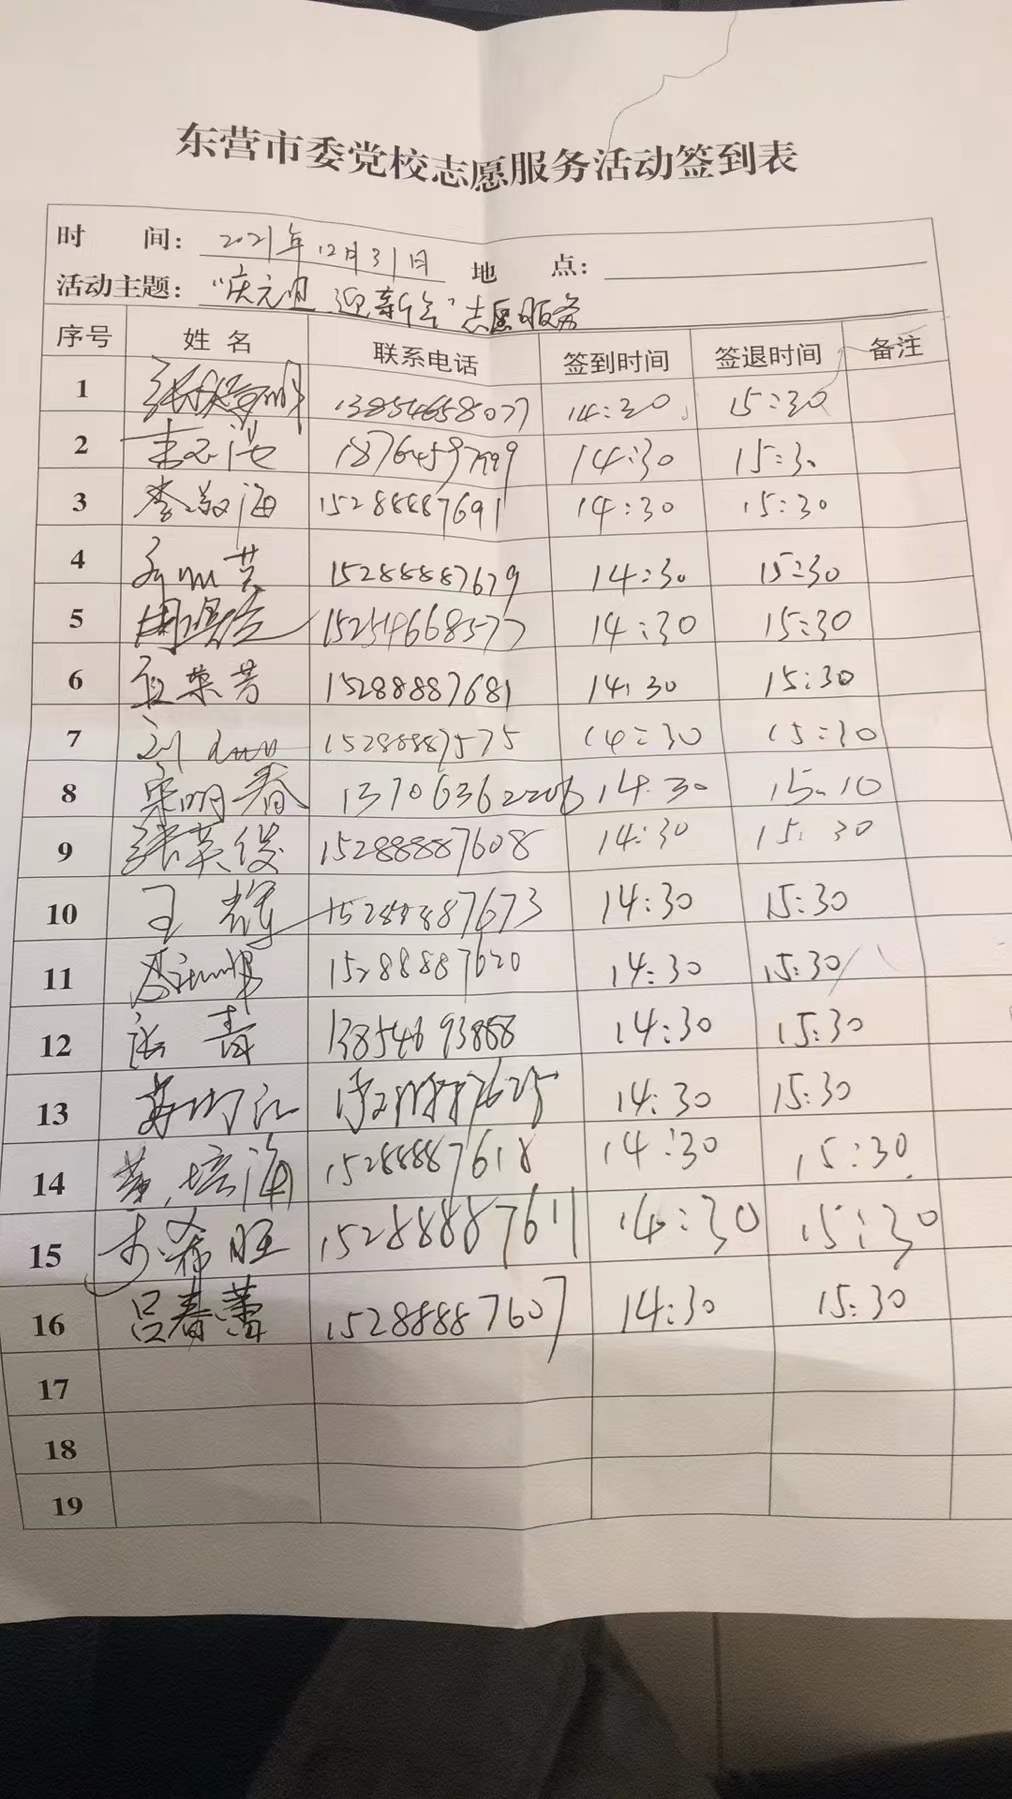 东营市委党校志愿服务活动签到表
时 间：2021年12月31日 地 点：
活动主题："庆元旦 迎新年"志愿服务
序号 姓名 联系电话 签到时间 签退时间 备注
1 13854658077 14:30 15:30
2 14:30 15:30
3 李敬海 15288887691 14:30 15:30
4 15288887679 14:30 15:30
5 15254668577 14:30 15:30
6 荣芳 15288887681 14:30 15:30
7 刘 15288887575 14:30 15:30
8 宋明春 13706362206 14:30 15:10
9 张英俊 15288887608 14:30 15:30
10 王辉 15288887673 14:30 15:30
11 15288887620 14:30 15:30
12 张青 13854693888 14:30 15:30
13 14:30 15:30
14 黄培海 15288887618 14:30 15:30
15 希旺 15288887611 14:30 15:30
16 吕春蕾 15288887607 14:30 15:30
17
18
19